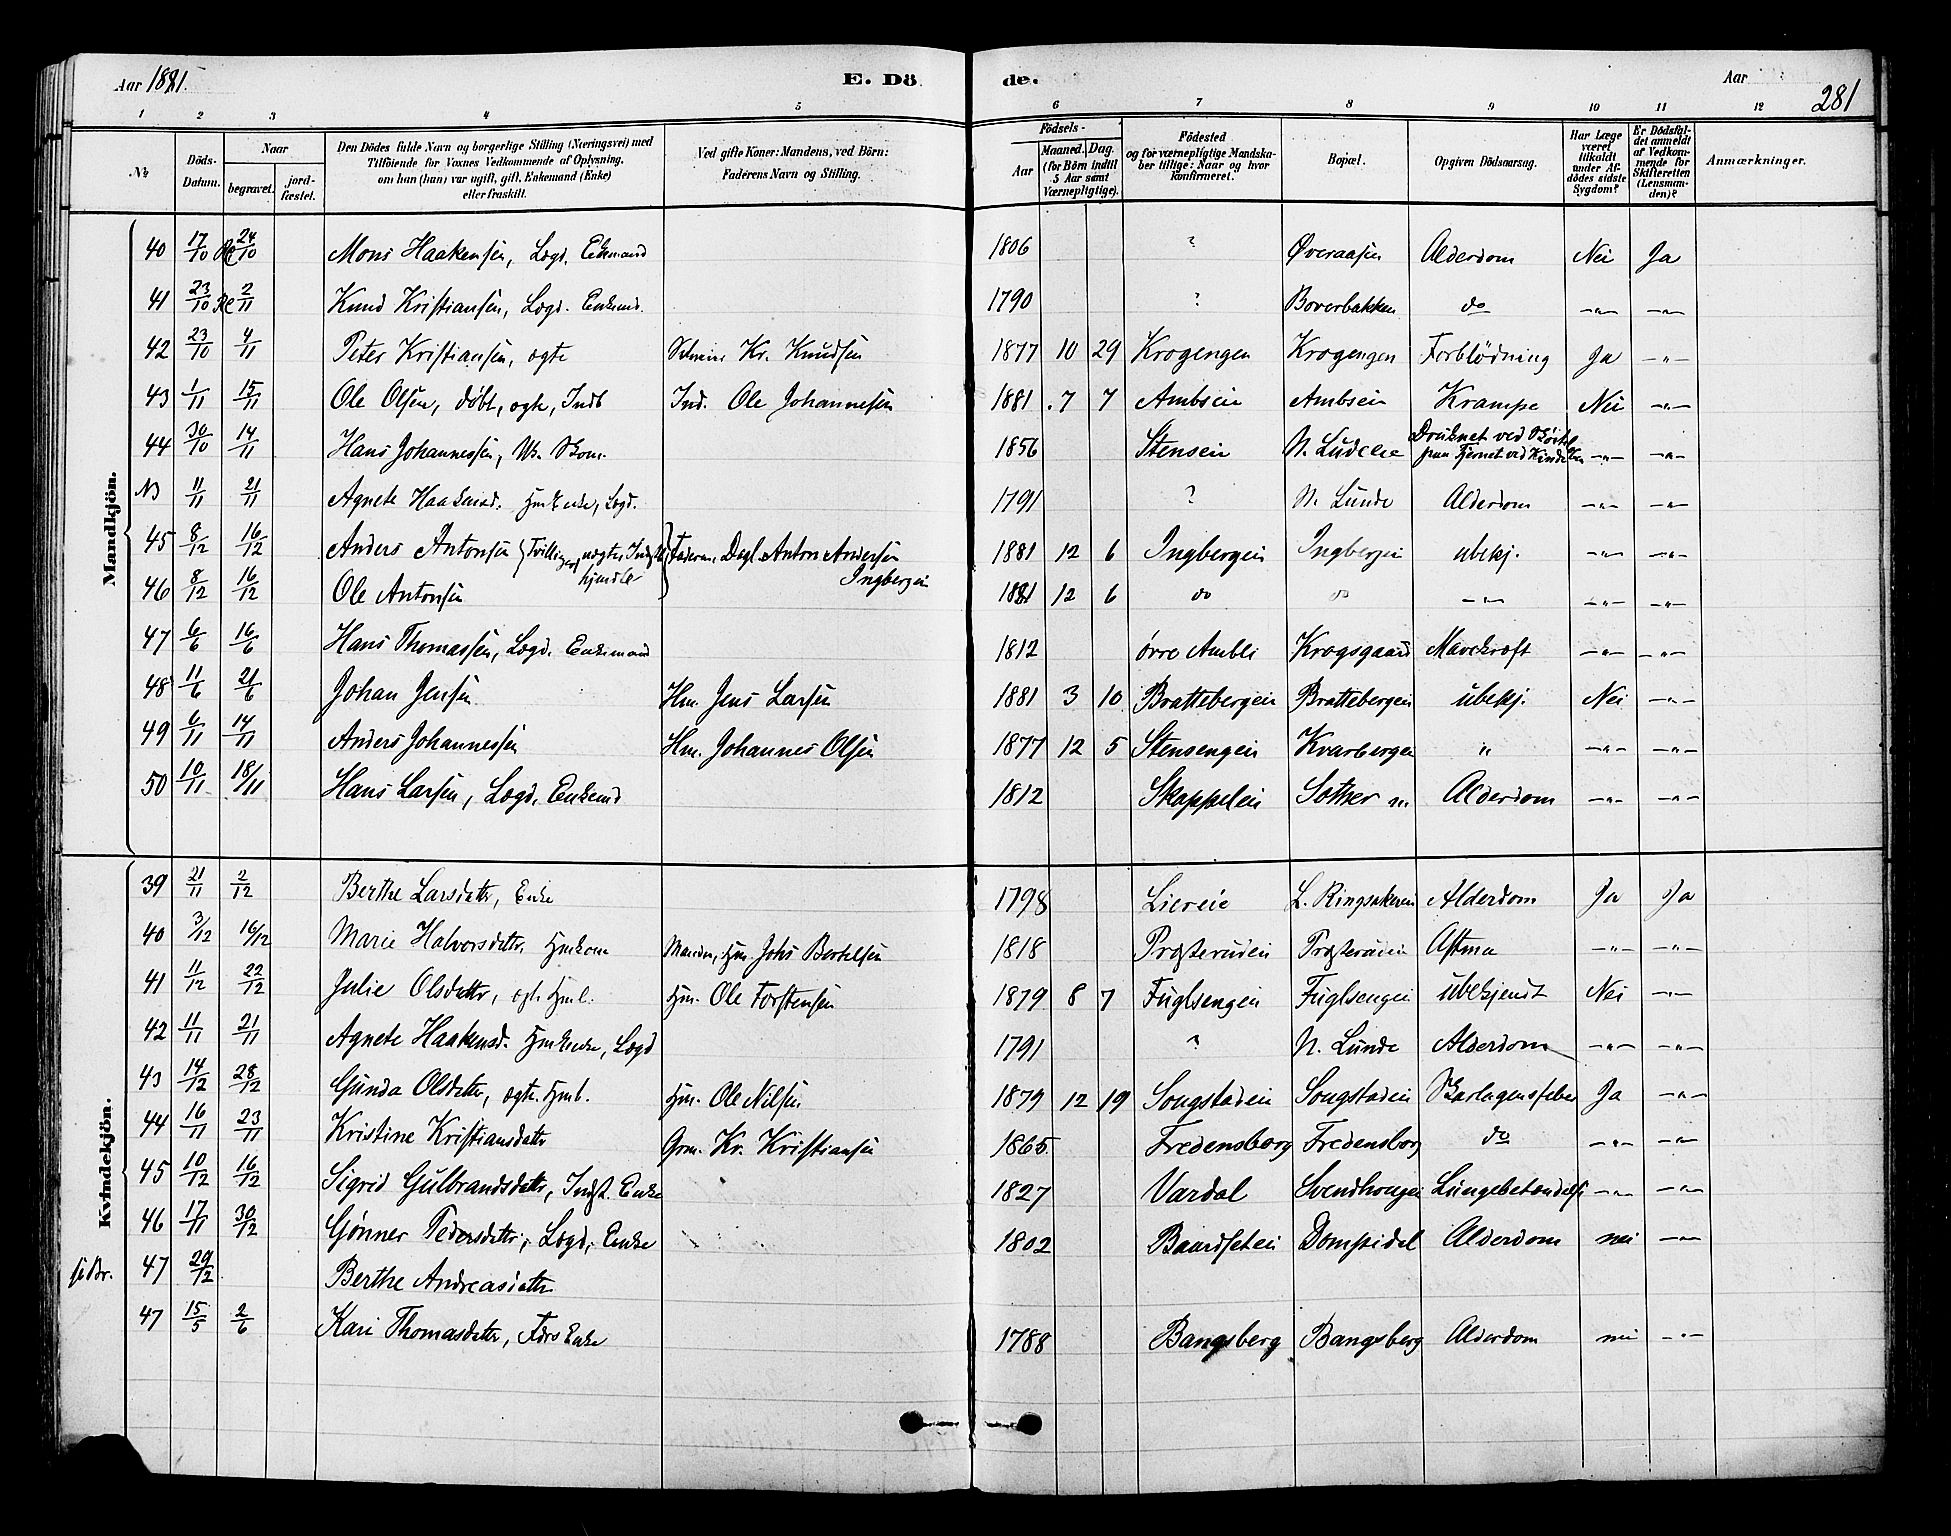 Aar 1881.
E. Dö
de.
Aar
281
1 2 3 4 5 6 7 8 9 10 11 12
No
Döds-Datum.
Naar
begravet.
jord-fæstet.
Den Dödes fulde Navn og borgerlige Stilling (Næringsvei) med
Tilföiende for Voxnes Vedkommende af Oplysning,
om han (hun) var ugift, gift, Enkemand (Enke)
eller fraskilt.
Ved gifte Koner: Mandens, ved Börn:
Faderens Navn og Stilling.
Födsels-
Aar
Maaned. Dag.
(for Börn indtil
5 Aar samt
Værnepligtige).
Födested
og for værnepligtige Mandska-
ber tillige: Naar og hvor
konfirmeret.
Bopæl.
Opgiven Dödsaarsag.
Har Læge
været
tilkaldt
under Af-
dödes sidste
Sygdom?
Er Dödsfal-
det anmeldt
af Vedkom-
mende for
Skifteretten
(Lensman-
den)?
Anmærkninger.
Mandkjön.
40 17/10 24/10 Mons Haakensen, Lægd. Enkemand 1806 ? Överaasen Alderdom Nei Ja
41 23/10 2/11 Knud Kristiansen, Lægd. Enkemd. 1790 ? Boverbakken do -"- -"-
42 23/10 4/11 Peter Kristiansen, ægte Kr. Knudsen 1877 10 29 Krogengen Krogengen Forblödning Ja -"-
43 1/11 15/11 Ole Olsen, döbt, ægte, Inds Ind. Ole Johannesen 1881 7 7 Ambsein Ambsein Krampe Nei -"-
44 30/10 14/11 Hans Johannessen, Uk. Skom. 1856 Stensein Druknet ved
-"- -"-
NB 11/11 21/11 Agnete Haakensd. Hmkenke, Lægd. 1791 ? N. Lunde Alderdom -"- -"-
45 8/12 16/12 Anders Antonsen Tvillinger uægte, Faderen, Dagl. Anton Andersen 1881 12 6 Ingbergein Ingbergein ubekj. -"- -"-
Ingbergein
46 8/12 16/12 Ole Antonsen 1881 12 6 do do -"- -"- -"-
47 6/6 16/6 Hans Thomassen, Lægd. Enkemand 1812 övre Ambli Krogsgaard Mavekræft -"- -"-
48 11/6 21/6 Johan Jensen Hm. Jens Larsen 1881 3 10 Brattebergein Brattebergein ubekj. Nei -"-
49 6/11 14/11 Anders Johannessen Hm. Johannes Olsen 1877 12 5 Stensengein Kvarbergen " -"- -"-
50 10/11 18/11 Hans Larsen, Lægd. Enkemd 1812 Skappelein Sother n. Alderdom -"- -"-
Kvindekjön.
39 21/11 2/12 Berthe Larsdatter, Enke 1798 Liereie L. Ringsakerein Alderdom Ja Ja
40 3/12 16/12 Marie Halvorsdatter, Hmkone Manden, Hm Johs Bertelsen 1818 Prosterudein Prosterudein Astma -"- -"-
41 11/12 22/12 Julie Olsdatter, ægt. Hmb. Hm. Ole Torstensen 1879 8 7 Fuglsengen Fuglsengen ubekjendt Nei -"-
42 11/11 21/11 Agnete Haakensd. Hmkenke, Lægd 1791 ? N. Lunde Alderdom -"- -"-
43 14/12 28/12 Gunda Olsdatter, ægte. Hmb. Hm. Ole Nilsen 1879 12 19 Songstadein Songstadein Skarlagensfeber Ja -"-
44 16/11 23/11 Kristine Kristiansdatter Grm. Kr. Kristiansen 1865 Fredensborg Fredensborg do -"- -"-
45 10/12 16/12 Sigrid Gulbrandsdatter, Indst. Enke 1827 Vardal Svendhougen Lungebetændelse -"- -"-
46 17/11 30/12 Gönner Pedersdatter, Lægd, Enke 1802 Baardsetein Dompidal Alderdom nei -"-
47 29/12 Berthe Andreasdatter
47 15/5 2/6 Kari Thomasdatter, Enke 1788 Bangsberg Bangsberg Alderdom nei -"-